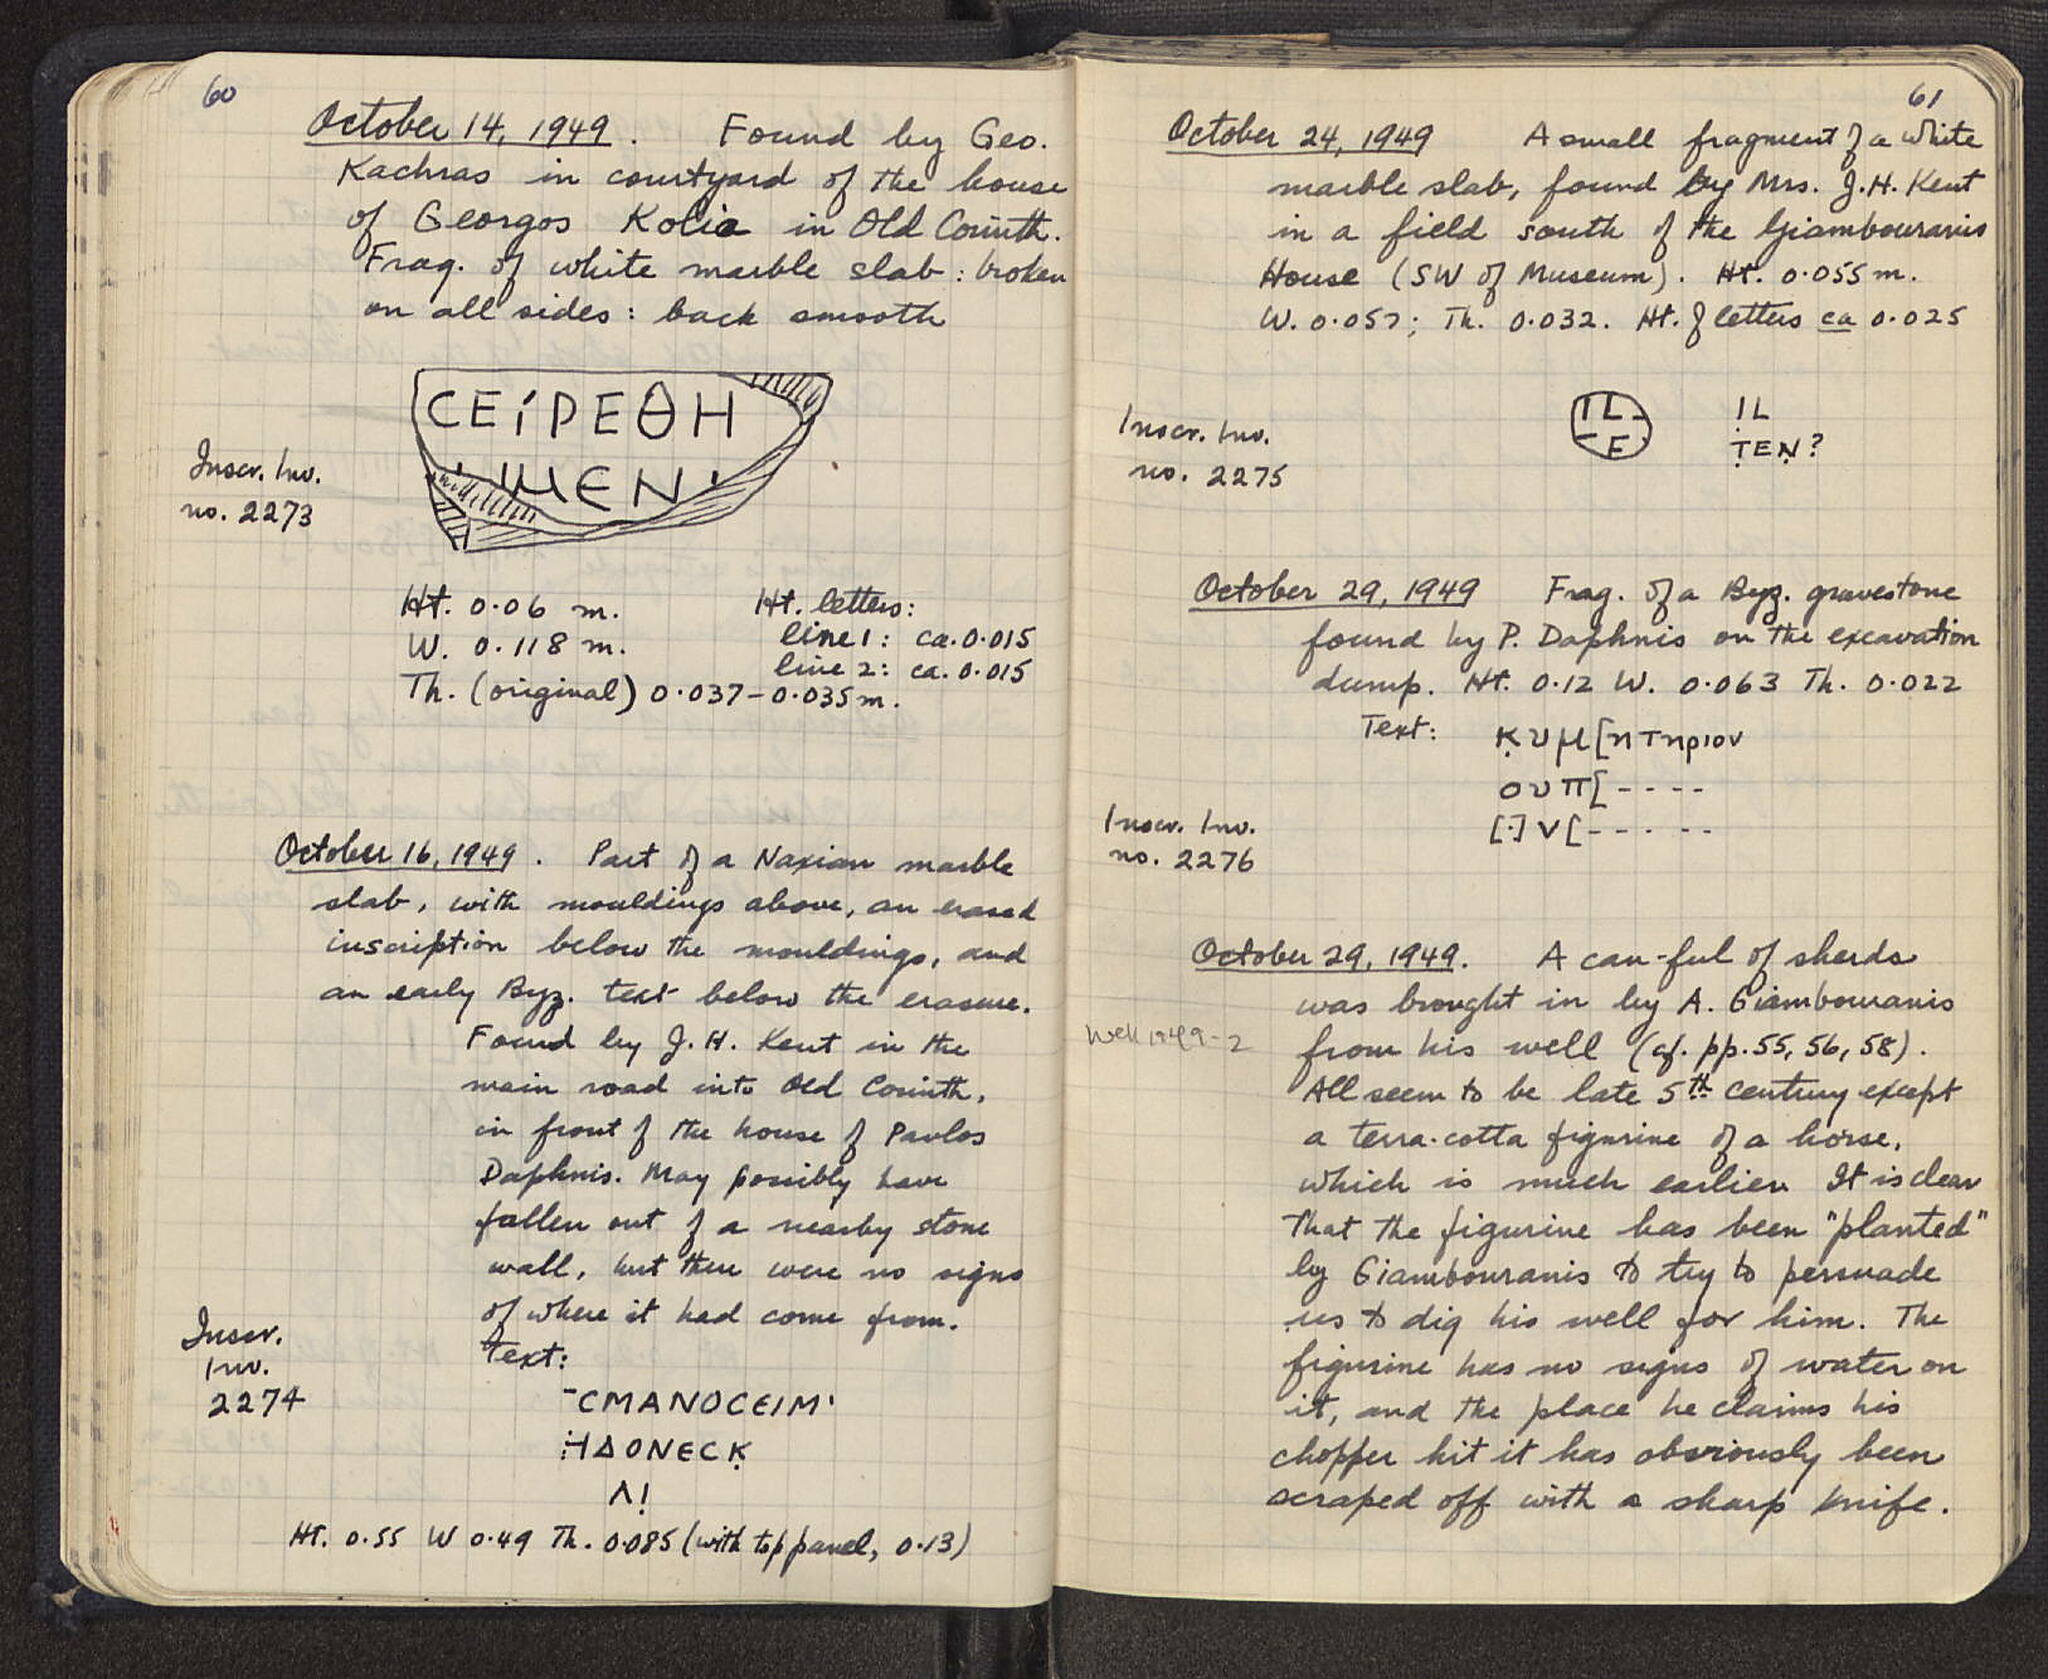 60
October 14, 1949. Found by Geo.
Kachras in courtyard of the house
of Georgos Kolia in Old Corinth.
Frag. of white marble slab: broken
on all sides: back smooth
ϹΕίΡΕΘΗ
ΜΕΝ
Inscr. Inv.
no. 2273
Ht. 0.06 m.
W. 0.118 m.
Th. (original) 0.037-0.035m.
Ht. letters:
line 1: ca. 0.015
line 2: ca. 0.015
October 16, 1949. Part of a Naxian marble
slab, with mouldings above, an erased
inscription below the mouldings, and
an early Byz. text below the erasure.
Found by J. H. Kent in the
main road into Old Corinth,
in front of the house of Pavlos
Daphnis. May possibly have
fallen out of a nearby stone
wall, but there were no signs
of where it had come from.
Inscr.
Inv.
2274
Text:
ϹΜΑΝΟϹΕΙΜ
ΗΔΟΝΕϹΚ̣
Λ!
Ht. 0.55 W 0.49 Th. 0.085 (with top panel, 0.13)
61
October 24, 1949 A small fragment of a white
marble slab, found by Mrs. J.H. Kent
in a field south of the Giambouranis
House (SW of Museum). Ht. 0.055 m.
W. 0.057; Th. 0.032. Ht. of letters ca 0.025
Inscr. Inv.
no. 2275
IL
E
ỊL
ṬEṆ?
October 29, 1949 Frag. of a Byz. gravestone
found by P. Daphnis on the excavation
dump. Ht. 0.12 W. 0.063 Th. 0.022
Text: κ̣υμ[ητηριον
ουπ[----
[.]ν[-----
Inscr. Inv.
no. 2276
October 29, 1949. A can-ful of sherds
was brought in by A. Giambouranis
from his well (cf. pp. 55, 56, 58).
Well 1949-2
All seem to be late 5th century except
a terra-cotta figurine of a horse,
which is much earlier. It is clear
that the figurine has been "planted"
by Giambouranis to try to persuade
us to dig his well for him. The
figurine has no signs of water on
it, and the place he claims his
chopper hit it has obviously been
scraped off with a sharp knife.